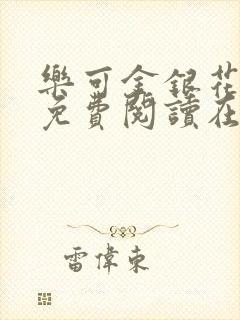 樂可金銀花
免費閱讀在
雷偉東